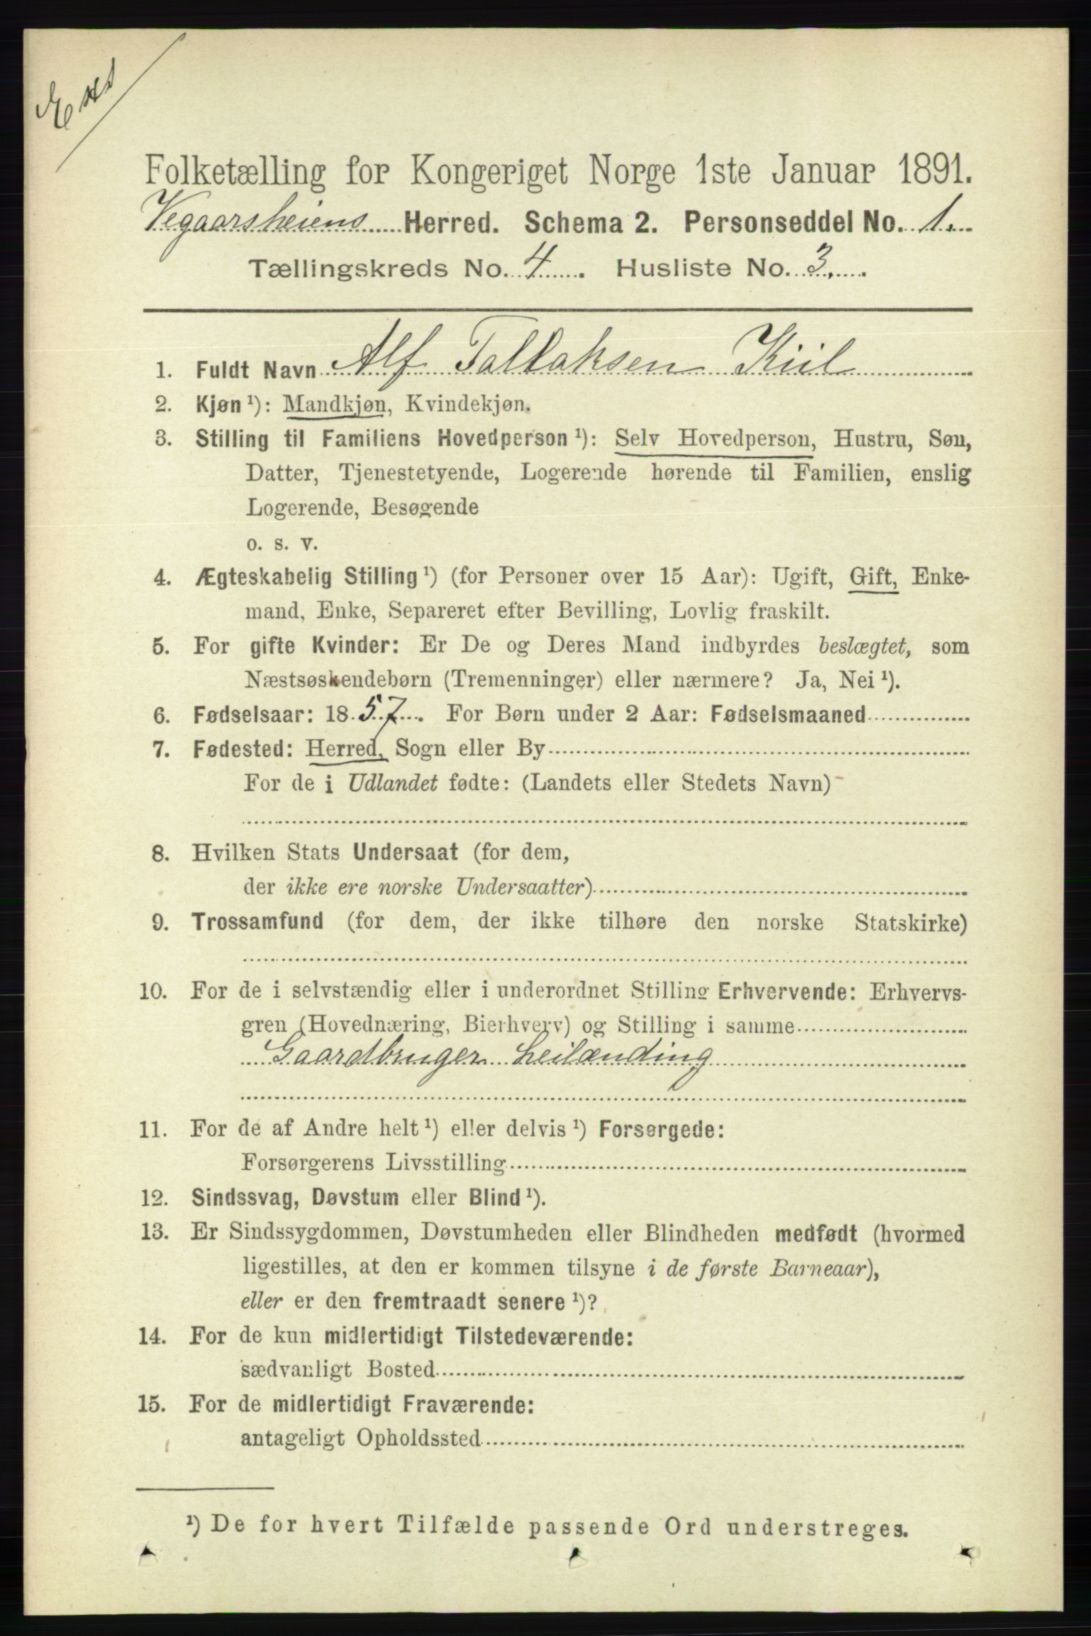 Folketælling for Kongeriget Norge 1ste Januar 1891.
Vegaarsheiens Herred. Schema 2. Personseddel No. 1.
Tællingskreds No. 4. Husliste No. 3.
1. Fuldt Navn Alf Tallaksen Kiil
2. Kjøn ¹): Mandkjøn, Kvindekjøn.
3. Stilling til Familiens Hovedperson ¹): Selv Hovedperson, Hustru, Søn,
Datter, Tjenestetyende, Logerende hørende til Familien, enslig
Logerende, Besøgende
o. s. v.
4. Ægteskabelig Stilling ¹) (for Personer over 15 Aar): Ugift, Gift, Enke-
mand, Enke, Separeret efter Bevilling, Lovlig fraskilt.
5. For gifte Kvinder: Er De og Deres Mand indbyrdes beslægtet, som
Næstsøskendebørn (Tremenninger) eller nærmere? Ja, Nei ¹).
6. Fødselsaar: 1857. For Børn under 2 Aar: Fødselsmaaned
7. Fødested: Herred, Sogn eller By
For de i Udlandet fødte: (Landets eller Stedets Navn)
8. Hvilken Stats Undersaat (for dem,
der ikke ere norske Undersaatter)
9. Trossamfund (for dem, der ikke tilhøre den norske Statskirke)
10. For de i selvstændig eller i underordnet Stilling Erhvervende: Erhvervs-
gren (Hovednæring, Bierhverv) og Stilling i samme
Gaardbruger Leilænding
11. For de af Andre helt ¹) eller delvis ¹) Forsørgede:
Forsørgerens Livsstilling
12. Sindssvag, Døvstum eller Blind ¹).
13. Er Sindssygdommen, Døvstumheden eller Blindheden medfødt (hvormed
ligestilles, at den er kommen tilsyne i de første Barneaar),
eller er den fremtraadt senere ¹)?
14. For de kun midlertidigt Tilstedeværende:
sædvanligt Bosted
15. For de midlertidigt Fraværende:
antageligt Opholdssted
¹) De for hvert Tilfælde passende Ord understreges.